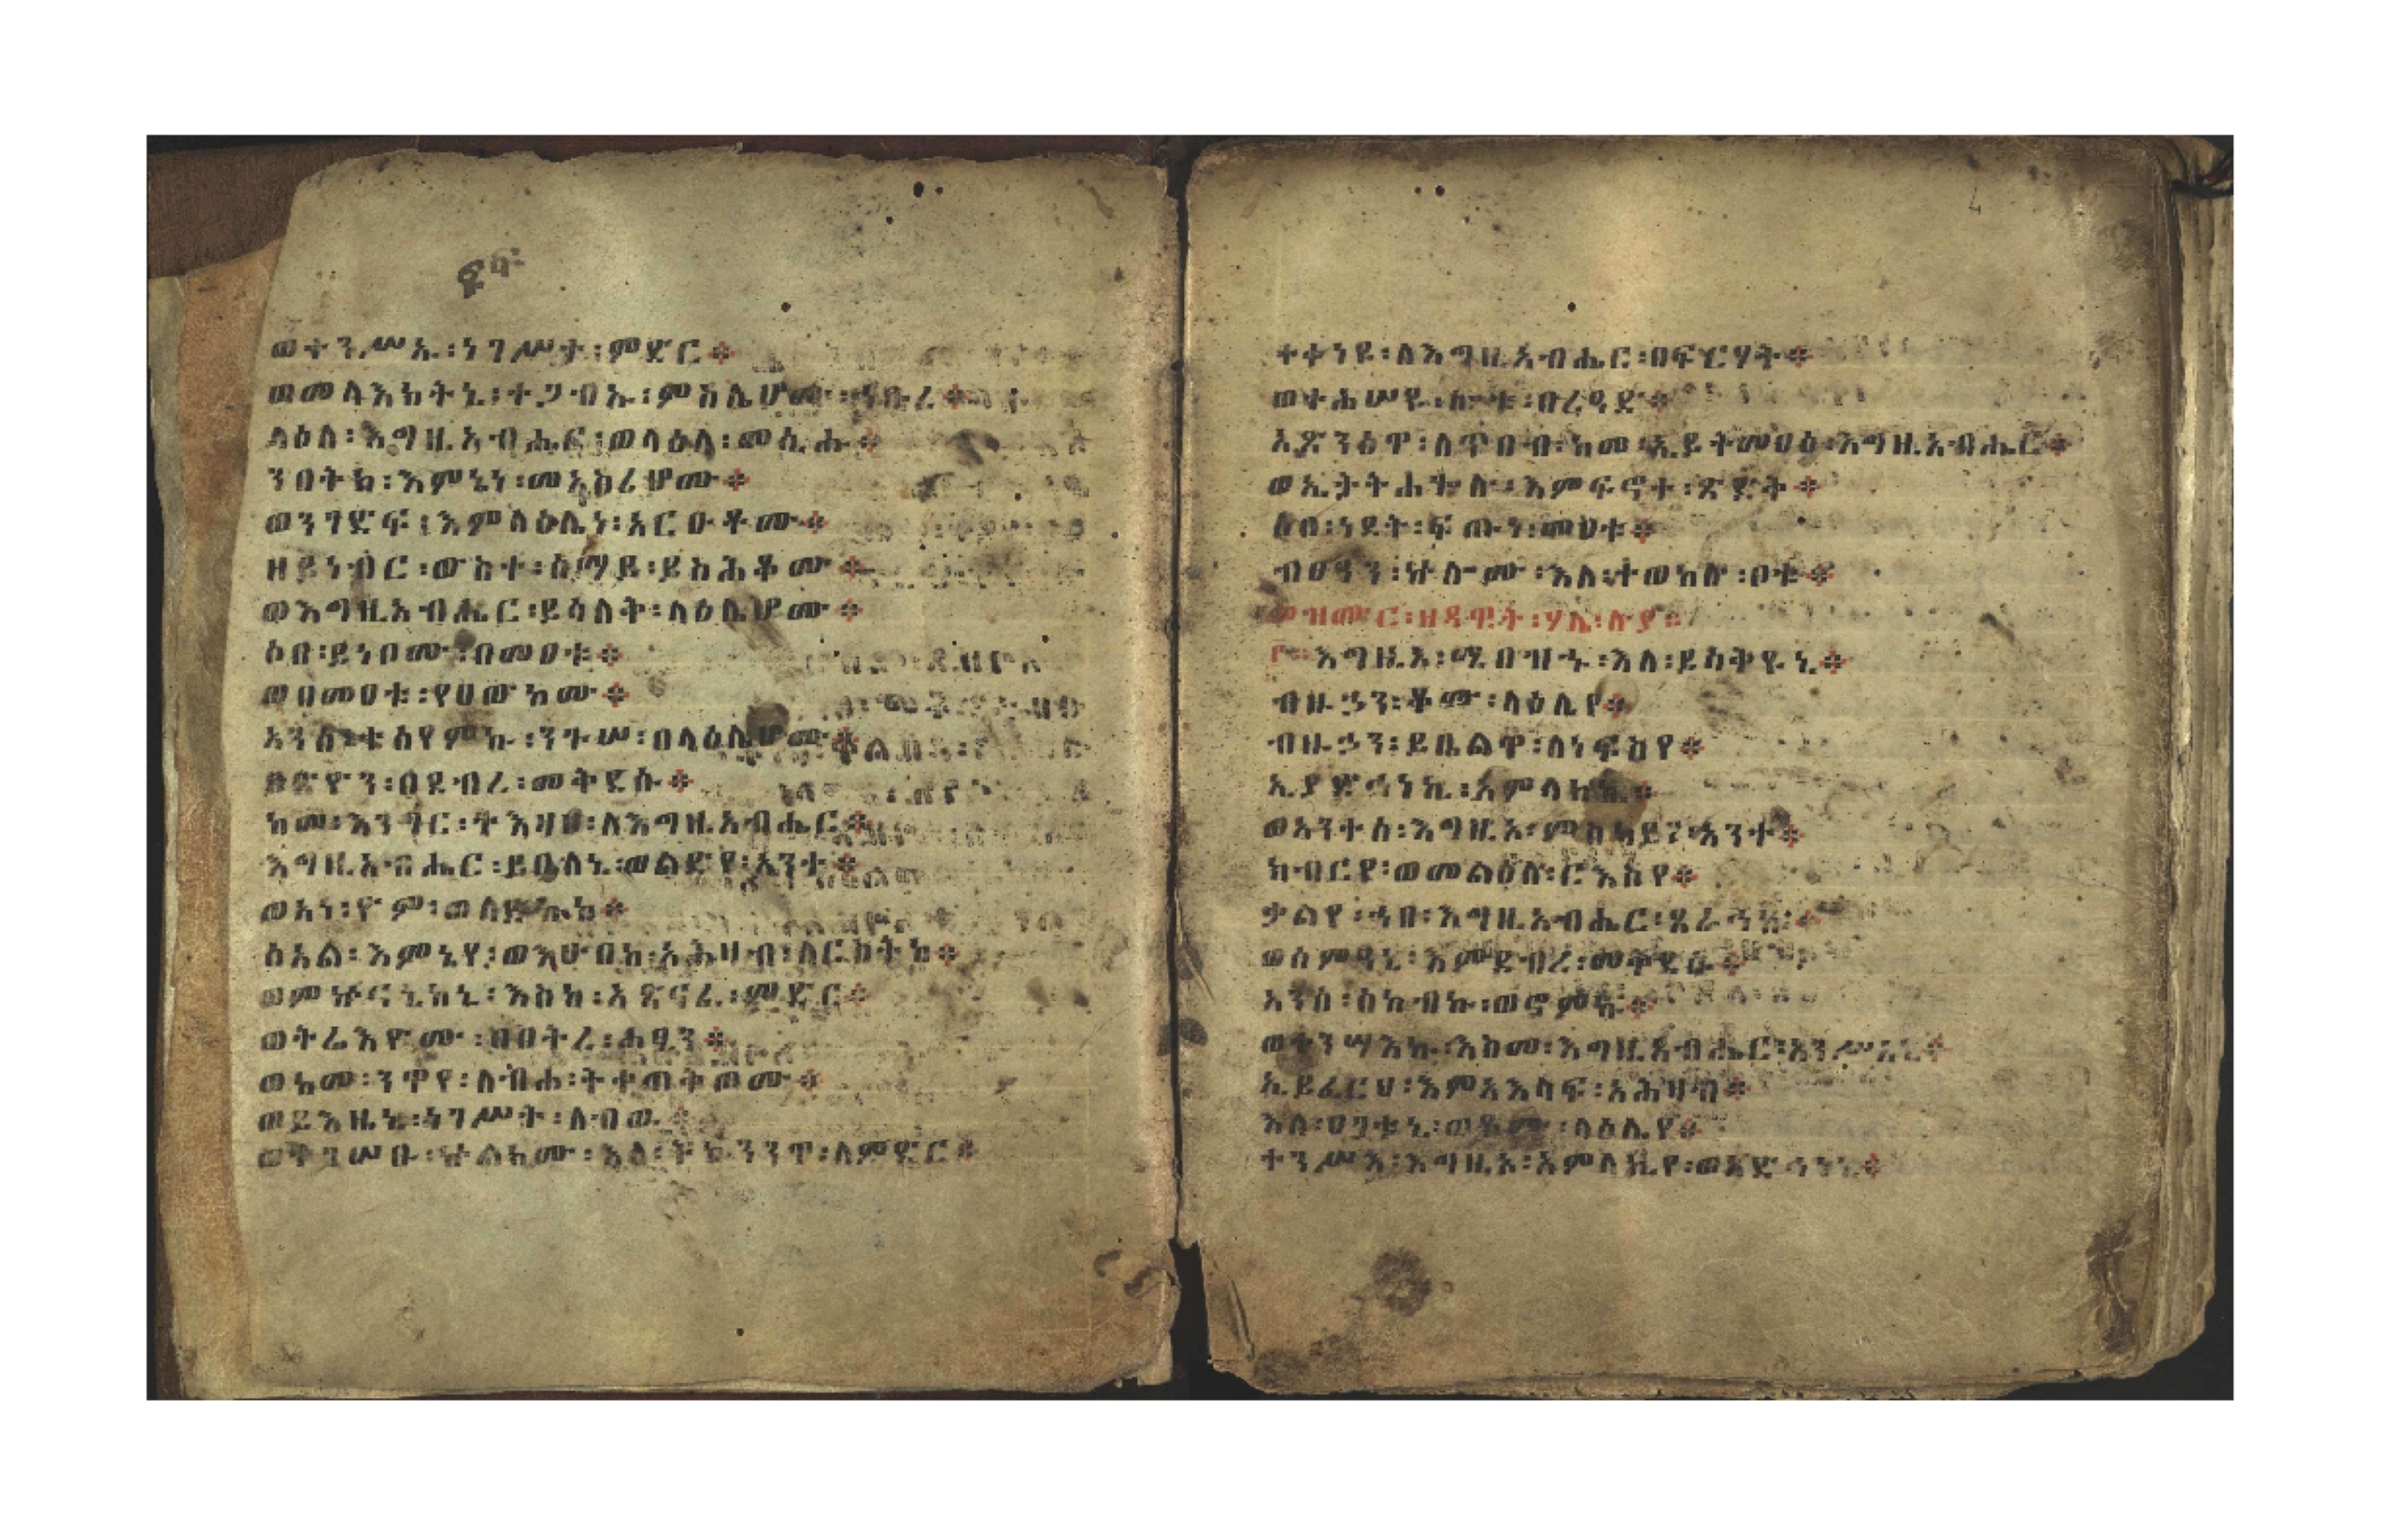 ወተንሥኡ፡ነገሥተ፡ምድር።
ወመላእክትኒ፡ተጋብኡ፡ምስሌሆሙ፡ኅቡረ።
ላዕለ፡እግዚአብሔር፡ወላዕለ፡መሲሑ።
ንበትክ፡እምኔነ፡መኣስሪሆሙ።
ወንገድፍ፡እምላዕሌነ፡አርዑቶሙ።
ዘይነብር፡ውስተ፡ሰማይ፡ይስሕቆሙ።
ወእግዚአብሔር፡ይሳለቅ፡ላዕሌሆሙ።
ሶበ፡ይነቦሙ፡በመዐቱ።
ወበመዐቱ፡የሀውኮሙ።
አንሰ፡ተሰየምኩ፡ንጉሠ፡በላዕሌሆሙ።
በጽዮን፡በደብረ፡መቅደሱ።
ከመ፡እንግር፡ትእዛዞ፡ለእግዚአብሔር።
እግዚአብሔር፡ይቤለኒ፡ወልድየ፡አንተ።
ወአነ፡ዮም፡ወለድኩከ።
ሰአል፡እምኔየ፡ወእሁበከ፡አሕዛበ፡ለርስትከ።
ወምኵናኒከኒ፡እስከ፡አጽናፈ፡ምድር።
ወትሬእዮሙ፡በበትረ፡ሐፂን።
ወከመ፡ንዋየ፡ለብሐ፡ትቀጠቅጦሙ።
ወይእዜኒ፡ነገሥት፡ለብዉ።
ወተገሠጹ፡ኵልክሙ፡እለ፡ትኴንንዋ፡ለምድር።
ተቀነዩ፡ለእግዚአብሔር፡በፍርሃት።
ወተሐሠዩ፡ሎቱ፡በረዓድ።
አጽንዕዋ፡ለጥበብ፡ከመ፡ኢይትመዐዕ፡እግዚአብሔር።
ወኢትትሐጐሉ፡እምፍኖተ፡ጽድቅ።
ሶበ፡ነደት፡ፍጡነ፡መዐቱ።
ብፁዓን፡ኵሎሙ፡እለ፡ተወከሉ፡ቦቱ።
መዝሙር፡ዘዳዊት፡ሃሌ፡ሉያ።
፫እግዚኦ፡ሚበዝኁ፡እለ፡ይሣቅዩኒ።
ብዙኃን፡ቆሙ፡ላዕሌየ።
ብዙኃን፡ይቤልዋ፡ለነፍስየ።
ኢያድኅነኪ፡አምላክኪ።
ወአንተሰ፡እግዚኦ፡ምስካይየ፡አንተ።
ክብርየ፡ወመልዕለ፡ርእስየ።
ቃልየ፡ኀበ፡እግዚአብሔር፡ጸራኅኩ።
ወሰምዓኒ፡እምደብረ፡መቅደሱ።
አንሰ፡ሰከብኩ፡ወኖምኩ።
ወተንሣእኩ፡እስመ፡እግዚአብሔር፡አንሥአኒ።
ኢይፈርህ፡እምአእላፍ፡አሕዛብ።
እለ፡ዐገቱኒ፡ወቆሙ፡ላዕሌየ።
ተንሥእ፡እግዚኦ፡አምላኪየ፡ወአድኅነኒ።